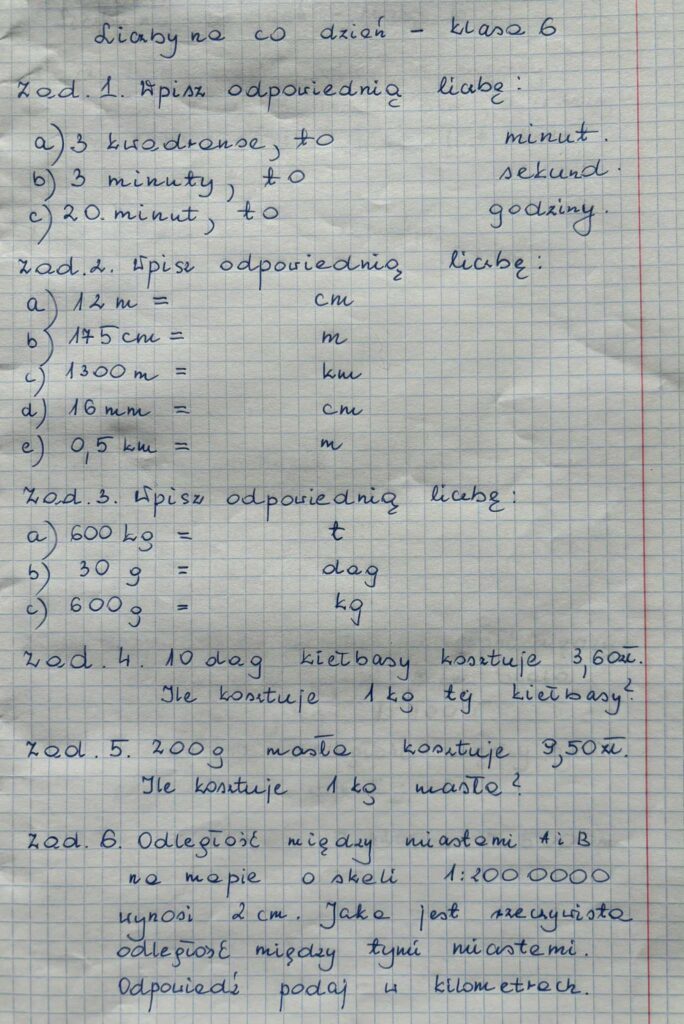 Liczby na co dzień - klasa 6
Zad. 1. Wpisz odpowiednią liczbę:
a) 3 kwadranse, to minut.
b) 3 minuty, to sekund.
c) 20. minut, to godziny.
Zad. 2. Wpisz odpowiednią liczbę:
a) 12 m = cm
b) 175 cm = m
c) 1300 m = km
d) 16 mm = cm
e) 0,5 km = m
Zad. 3. Wpisz odpowiednią liczbę:
a) 600 kg = t
b) 30 g = dag
c) 600 g = kg
Zad. 4. 10 dag kiełbasy kosztuje 3,60 zł.
Ile kosztuje 1 kg tej kiełbasy?
Zad. 5. 200 g masła kosztuje 9,50 zł.
Ile kosztuje 1 kg masła?
Zad. 6. Odległość między miastami A i B
na mapie o skali 1:200 0000
wynosi 2 cm. Jaka jest rzeczywista
odległość między tymi miastami.
Odpowiedź podaj w kilometrach.